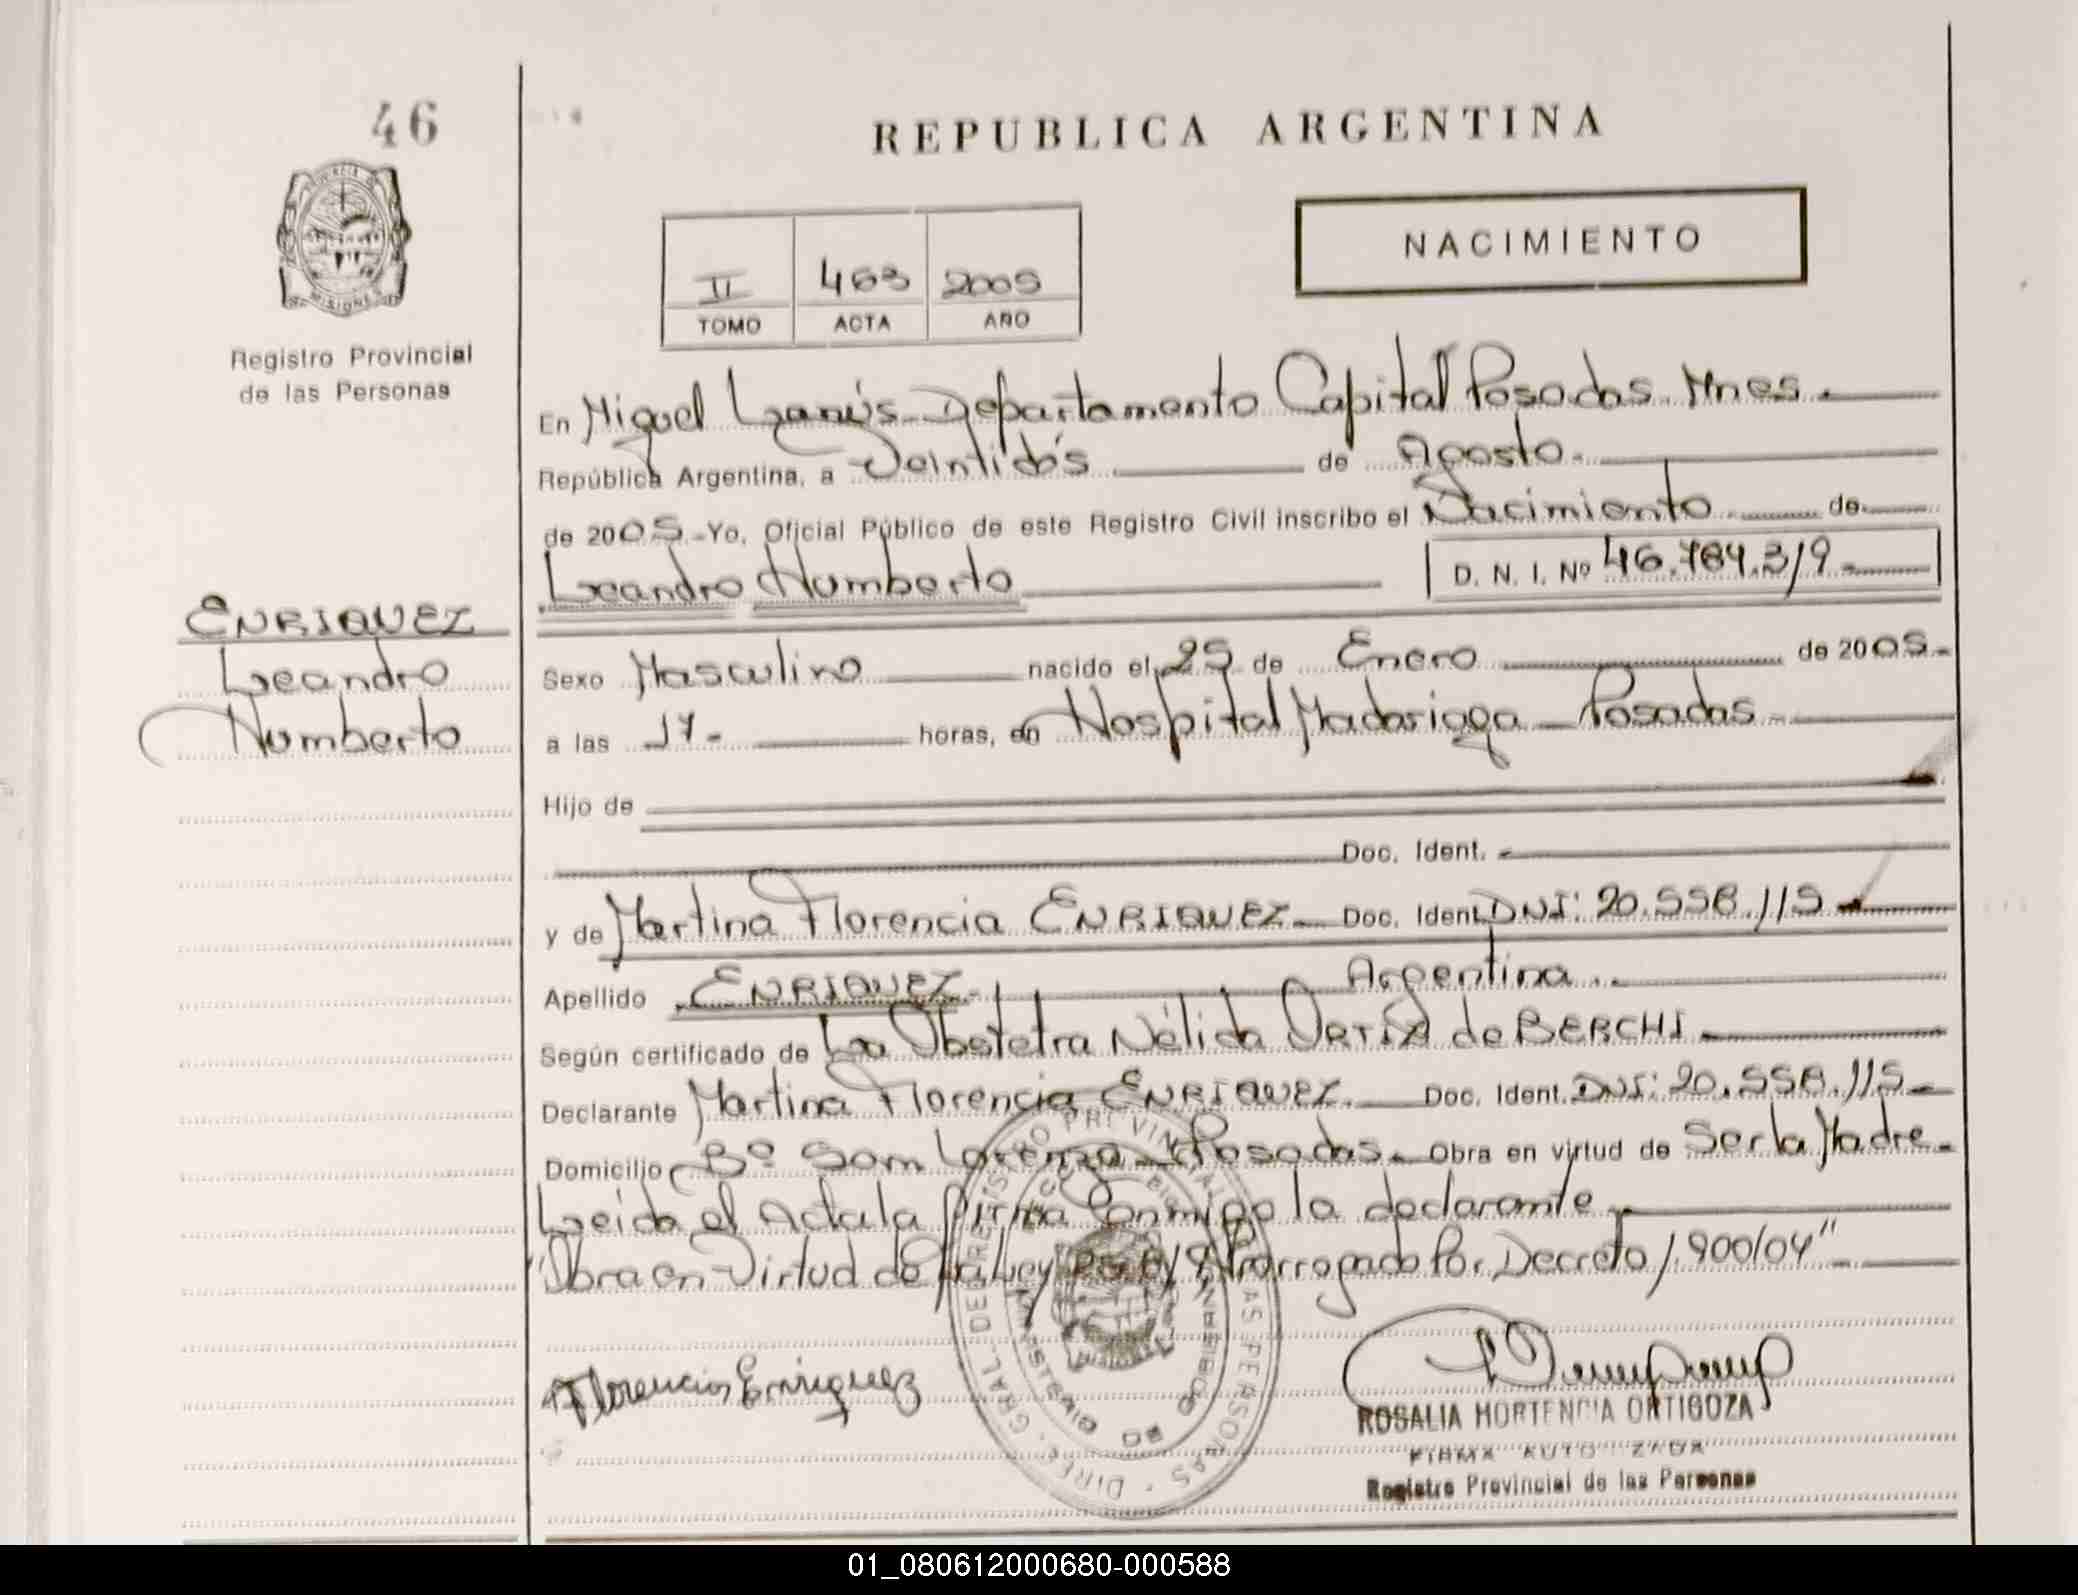 46
REPUBLICA ARGENTINA
NACIMIENTO
II 463 2005
TOMO ACTA AÑO
PROVINCIA DE MISIONES
Registro Provincial
de las Personas
En Miguel Lanús Departamento Capital Posadas. Mnes.
República Argentina, a Veintidós de Agosto.
de 2005.-Yo, Oficial Público de este Registro Civil inscribo el Nacimiento de
Leandro Humberto D. N. I. Nº 46.784.319.
ENRIQUEZ
Leandro
Humberto
Sexo Masculino nacido el 25 de Enero de 2005.
a las 17- horas, en Hospital Madariaga - Posadas
Hijo de
Doc. Ident.
y de Martina Florencia ENRIQUEZ Doc. Ident. DNI: 20.558.115
Apellido ENRIQUEZ Argentina.
Según certificado de La Obstetra Nélida de BERCHI
Declarante Martina Florencia ENRIQUEZ. Doc. Ident. DNI: 20.558.115
Domicilio Bº San Lorenzo - Posadas. Obra en virtud de Ser la Madre.
Leida el Acta la firma Conmigo la declarante
"Obra en Virtud de la Ley Prorrogado Por Decreto 1.900/04"
Florencia Enriquez
ROSALIA HORTENCIA ORTIGOZA
FIRMA AUTORIZADA
Registro Provincial de las Personas
01_080612000680-000588